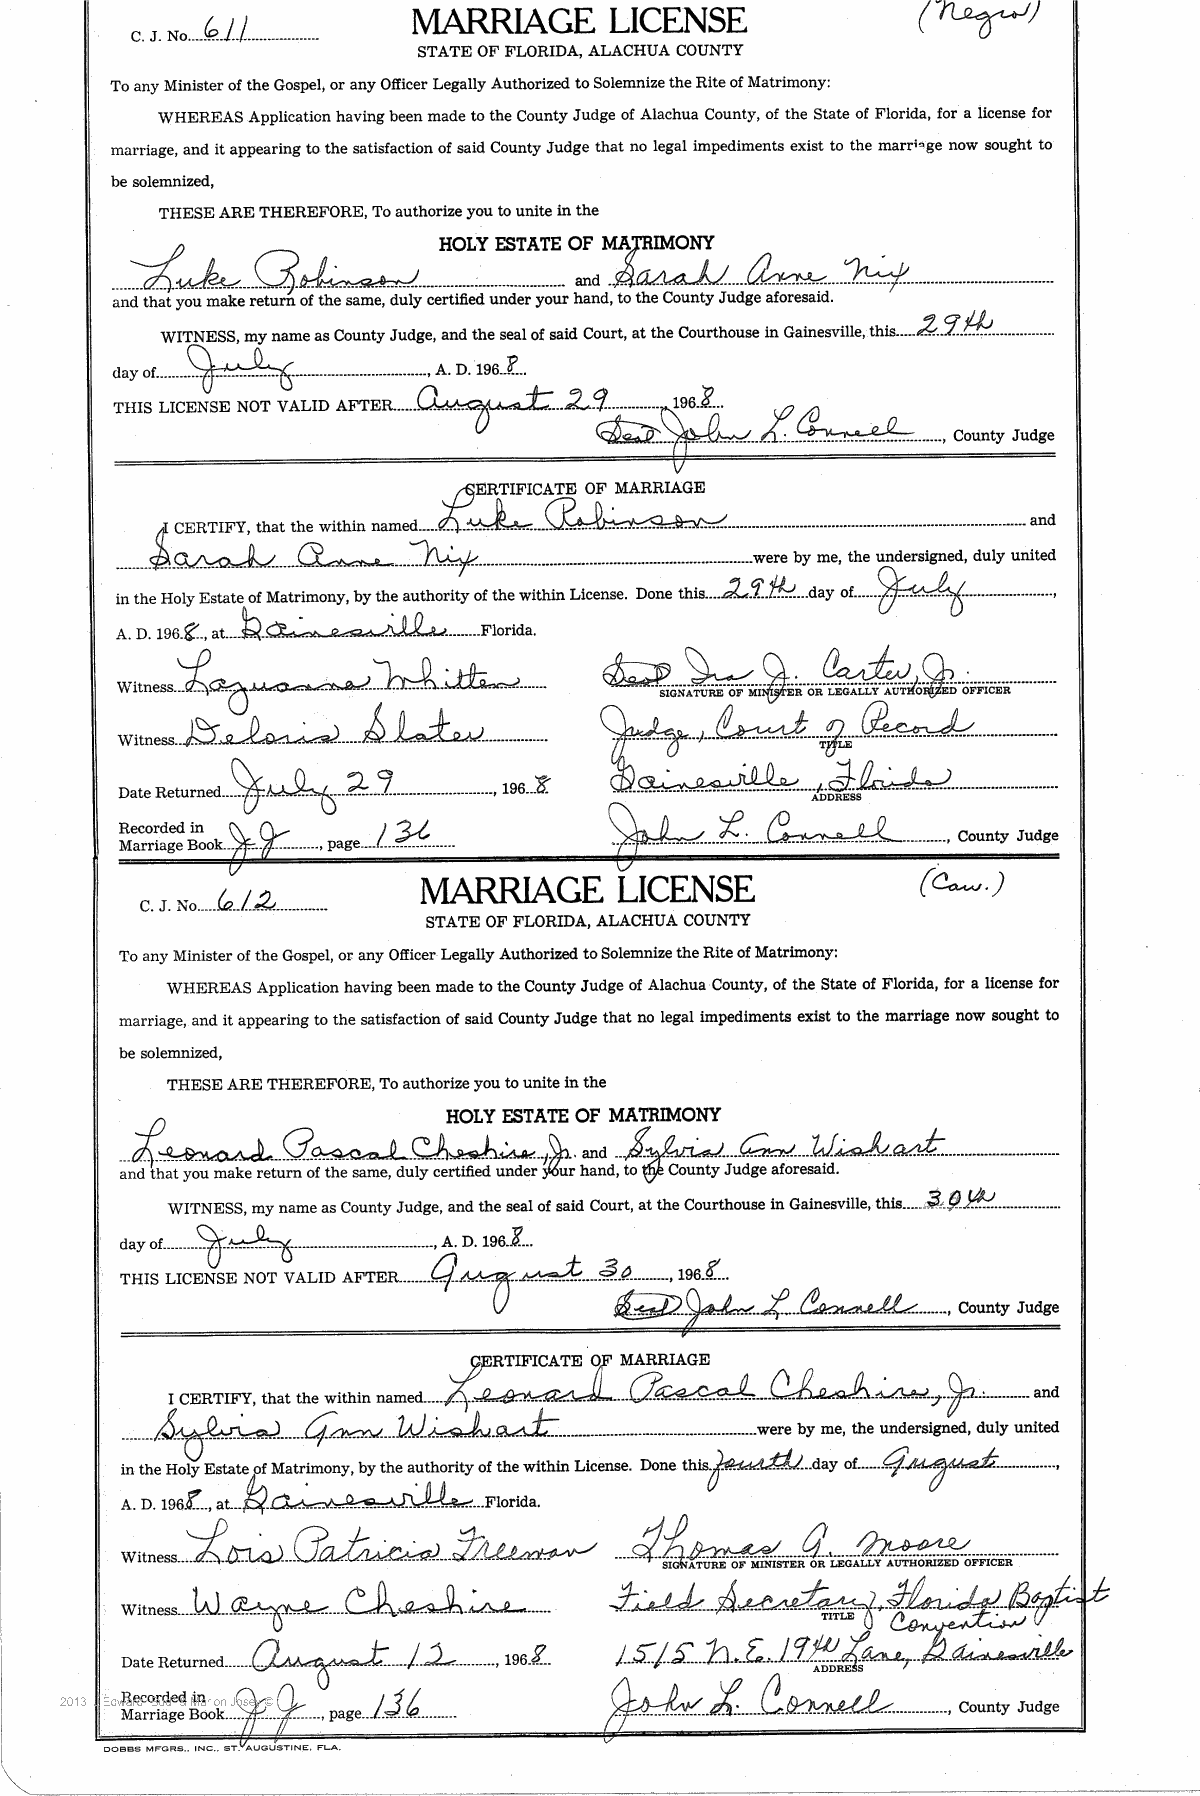 (Negro)
C. J. No. 611
MARRIAGE LICENSE
STATE OF FLORIDA, ALACHUA COUNTY
To any Minister of the Gospel, or any Officer Legally Authorized to Solemnize the Rite of Matrimony:
WHEREAS Application having been made to the County Judge of Alachua County, of the State of Florida, for a license for
marriage, and it appearing to the satisfaction of said County Judge that no legal impediments exist to the marriage now sought to
be solemnized,
THESE ARE THEREFORE, To authorize you to unite in the
HOLY ESTATE OF MATRIMONY
Luke Robinson and Sarah Anne Nix
and that you make return of the same, duly certified under your hand, to the County Judge aforesaid.
WITNESS, my name as County Judge, and the seal of said Court, at the Courthouse in Gainesville, this 29th
day of July, A. D. 1968.
THIS LICENSE NOT VALID AFTER August 29, 1968.
Seal John L. Connell, County Judge
CERTIFICATE OF MARRIAGE
I CERTIFY, that the within named Luke Robinson and
Sarah Anne Nix were by me, the undersigned, duly united
in the Holy Estate of Matrimony, by the authority of the within License. Done this 29th day of July,
A. D. 1968, at Gainesville Florida.
Witness Laquanna Whitten Seal Ira J. Carter, Jr.
SIGNATURE OF MINISTER OR LEGALLY AUTHORIZED OFFICER
Witness Deloris Slater Judge, Court of Record
TITLE
Date Returned July 29, 1968 Gainesville, Florida
ADDRESS
Recorded in
Marriage Book JJ, page 136 John L. Connell, County Judge
C. J. No. 612
MARRIAGE LICENSE
(Caw.)
STATE OF FLORIDA, ALACHUA COUNTY
To any Minister of the Gospel, or any Officer Legally Authorized to Solemnize the Rite of Matrimony:
WHEREAS Application having been made to the County Judge of Alachua County, of the State of Florida, for a license for
marriage, and it appearing to the satisfaction of said County Judge that no legal impediments exist to the marriage now sought to
be solemnized,
THESE ARE THEREFORE, To authorize you to unite in the
HOLY ESTATE OF MATRIMONY
Leonard Pascal Cheshire, Jr. and Sylvia Ann Wishart
and that you make return of the same, duly certified under your hand, to the County Judge aforesaid.
WITNESS, my name as County Judge, and the seal of said Court, at the Courthouse in Gainesville, this 30th
day of July, A. D. 1968.
THIS LICENSE NOT VALID AFTER August 30, 1968.
Seal John L Connell, County Judge
CERTIFICATE OF MARRIAGE
I CERTIFY, that the within named Leonard Pascal Cheshire, Jr. and
Sylvia Ann Wishart were by me, the undersigned, duly united
in the Holy Estate of Matrimony, by the authority of the within License. Done this fourth day of August,
A. D. 1968, at Gainesville Florida.
Witness Lois Patricia Freeman Thomas G. Moore
SIGNATURE OF MINISTER OR LEGALLY AUTHORIZED OFFICER
Witness Wayne Cheshire Field Secretary, Florida Baptist
TITLE Convention
Date Returned August 12, 1968 1515 N.E. 19th Lane, Gainesville
ADDRESS
2013
Recorded in
Marriage Book JJ, page 136 John L. Connell, County Judge
DOBBS MFGRS., INC., ST. AUGUSTINE, FLA.